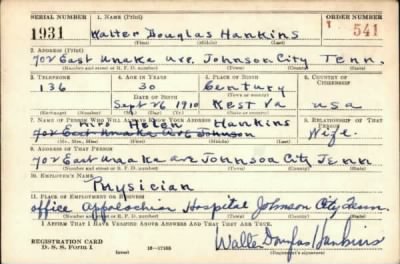 SERIAL NUMBER 1. NAME (Print) ORDER NUMBER
1931 Walter Douglas Hankins 541
(First) (Middle) (Last)
2. ADDRESS (Print)
702 East Unaka ave. Johnson City Tenn.
(Number and street or R. F. D. number) (Town) (County) (State)
3. TELEPHONE 4. AGE IN YEARS 5. PLACE OF BIRTH 6. COUNTRY OF CITIZENSHIP
136 30 Century
DATE OF BIRTH
Sept 26 1910 West Va USA
(Exchange) (Number) (Mo.) (Day) (Yr.) (State or country)
7. NAME OF PERSON WHO WILL ALWAYS KNOW YOUR ADDRESS 8. RELATIONSHIP OF THAT PERSON
Mrs Helen Hankins
702 East Unaka ave Johnson Wife
(Mr., Mrs., Miss) (First) (Middle) (Last)
9. ADDRESS OF THAT PERSON
702 East Unaka ave Johnson City Tenn
(Number and street or R. F. D. number) (Town) (County) (State)
10. EMPLOYER'S NAME
Physician
11. PLACE OF EMPLOYMENT OR BUSINESS
office Appalachian Hospital Johnson City Tenn.
(Number and street or R. F. D. number) (Town) (County) (State)
I AFFIRM THAT I HAVE VERIFIED ABOVE ANSWERS AND THAT THEY ARE TRUE.
REGISTRATION CARD Walter Douglas Hankins
D. S. S. Form 1 (over) 16-17105 (Registrant's signature)